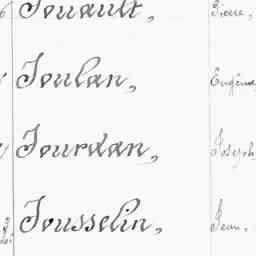 Jouault, Pierre,
Joulan, Eugène,
Jourdan, Joseph,
Jousselin, Jean.